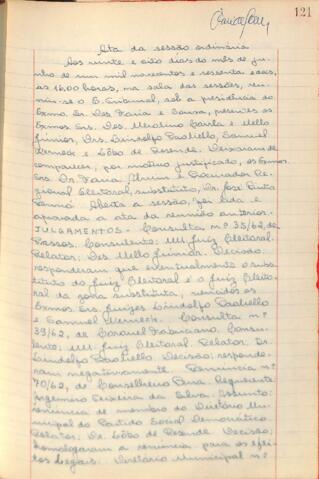 121
Ata da sessão ordinária
Aos vinte e oito dias do mês de ju-
nho de um mil novecentos e sessenta e dois,
às 16,00 horas, na sala das sessões, reu-
niu-se o E. Tribunal, sob a presidência do
Exmo. Sr. Des. Faria e Sousa, presentes os
Exmos. Srs. Des. Merolino e Mello
Júnior, Drs. Lindolfo Paoliello, Samuel
Werneck e Lôbo de Resende. Deixaram de
comparecer, por motivo justificado, os Exmos.
Srs. Dr. Faria e Procurador Re-
gional Eleitoral, substituto, Dr. José Pinto
Aberta a sessão, foi lida e
aprovada a ata da reunião anterior.
JULGAMENTOS - Consulta nº 35/62, de
Passos. Consulente: MM. Juiz Eleitoral.
Relator: Des. Mello Júnior. Decisão:
responderam que eventualmente o subs-
tituto do Juiz Eleitoral é o Juiz Eleito-
ral da zona substituta, vencidos os
Exmos. Srs. Juízes Lindolfo Paoliello
e Samuel Werneck. Consulta nº
39/62, de Coronel Fabriciano. Consu-
lente: MM. Juiz Eleitoral. Relator: Dr.
Lindolfo Paoliello. Decisão: responde-
ram negativamente. Renúncia nº
70/62, de Conselheiro Pena. Requerente:
Argemiro Teixeira da Silva. Assunto:
renúncia de membro do Diretório Mu-
nicipal do Partido Social Democrático.
Relator: Dr. Lôbo de Resende. Decisão:
homologaram a renúncia para os efei-
tos legais. Diretório Municipal nº